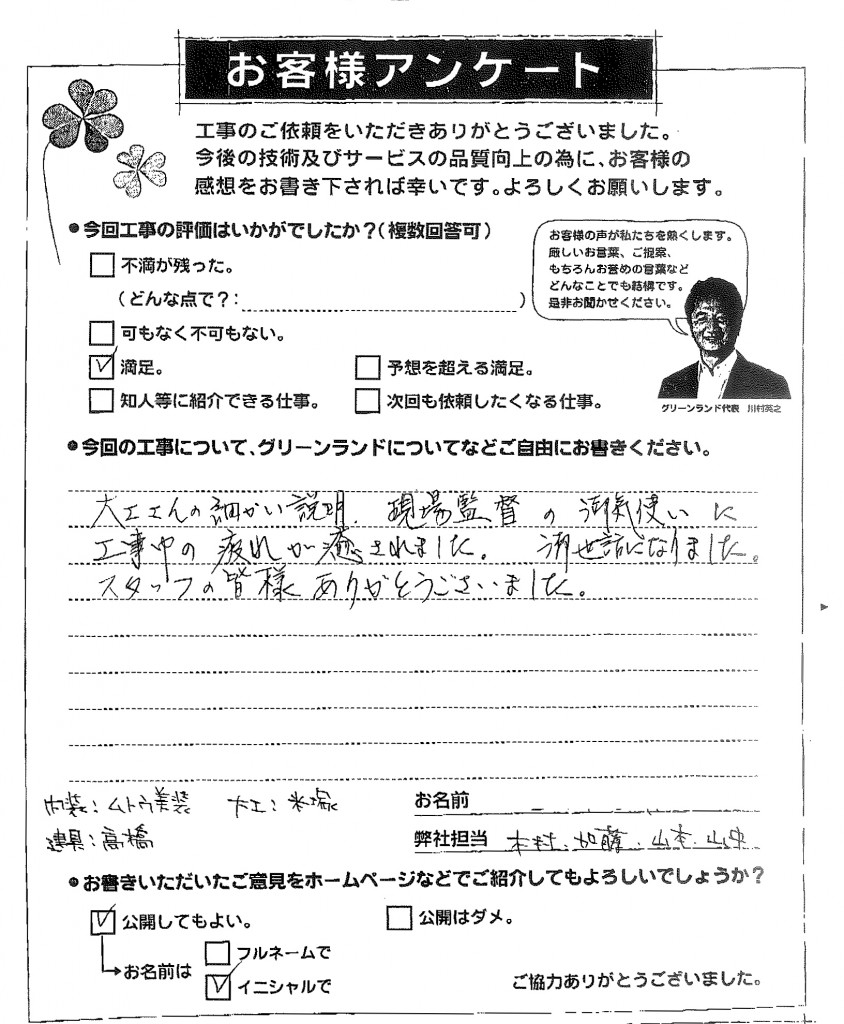 お客様アンケート
工事のご依頼をいただきありがとうございました。
今後の技術及びサービスの品質向上の為に、お客様の
感想をお書き下されば幸いです。よろしくお願いします。
●今回工事の評価はいかがでしたか?(複数回答可)
不満が残った。
(どんな点で?: )
可もなく不可もない。
満足。
予想を超える満足。
知人等に紹介できる仕事。
次回も依頼したくなる仕事。
お客様の声が私たちを熱くします。
厳しいお言葉、ご提案、
もちろんお誉めの言葉など
どんなことでも結構です。
是非お聞かせください。
グリーンランド代表 川村英之
●今回の工事について、グリーンランドについてなどご自由にお書きください。
大工さんの細かい説明、現場監督の御気使いに
工事中の疲れが癒されました。御世話になりました。
スタッフの皆様ありがとうございました。
内装:ムトウ美装 大工:米塚
建具:高橋
お名前
弊社担当 木村、加藤、山本、
●お書きいただいたご意見をホームページなどでご紹介してもよろしいでしょうか?
公開してもよい。
公開はダメ。
お名前は
フルネームで
イニシャルで
ご協力ありがとうございました。